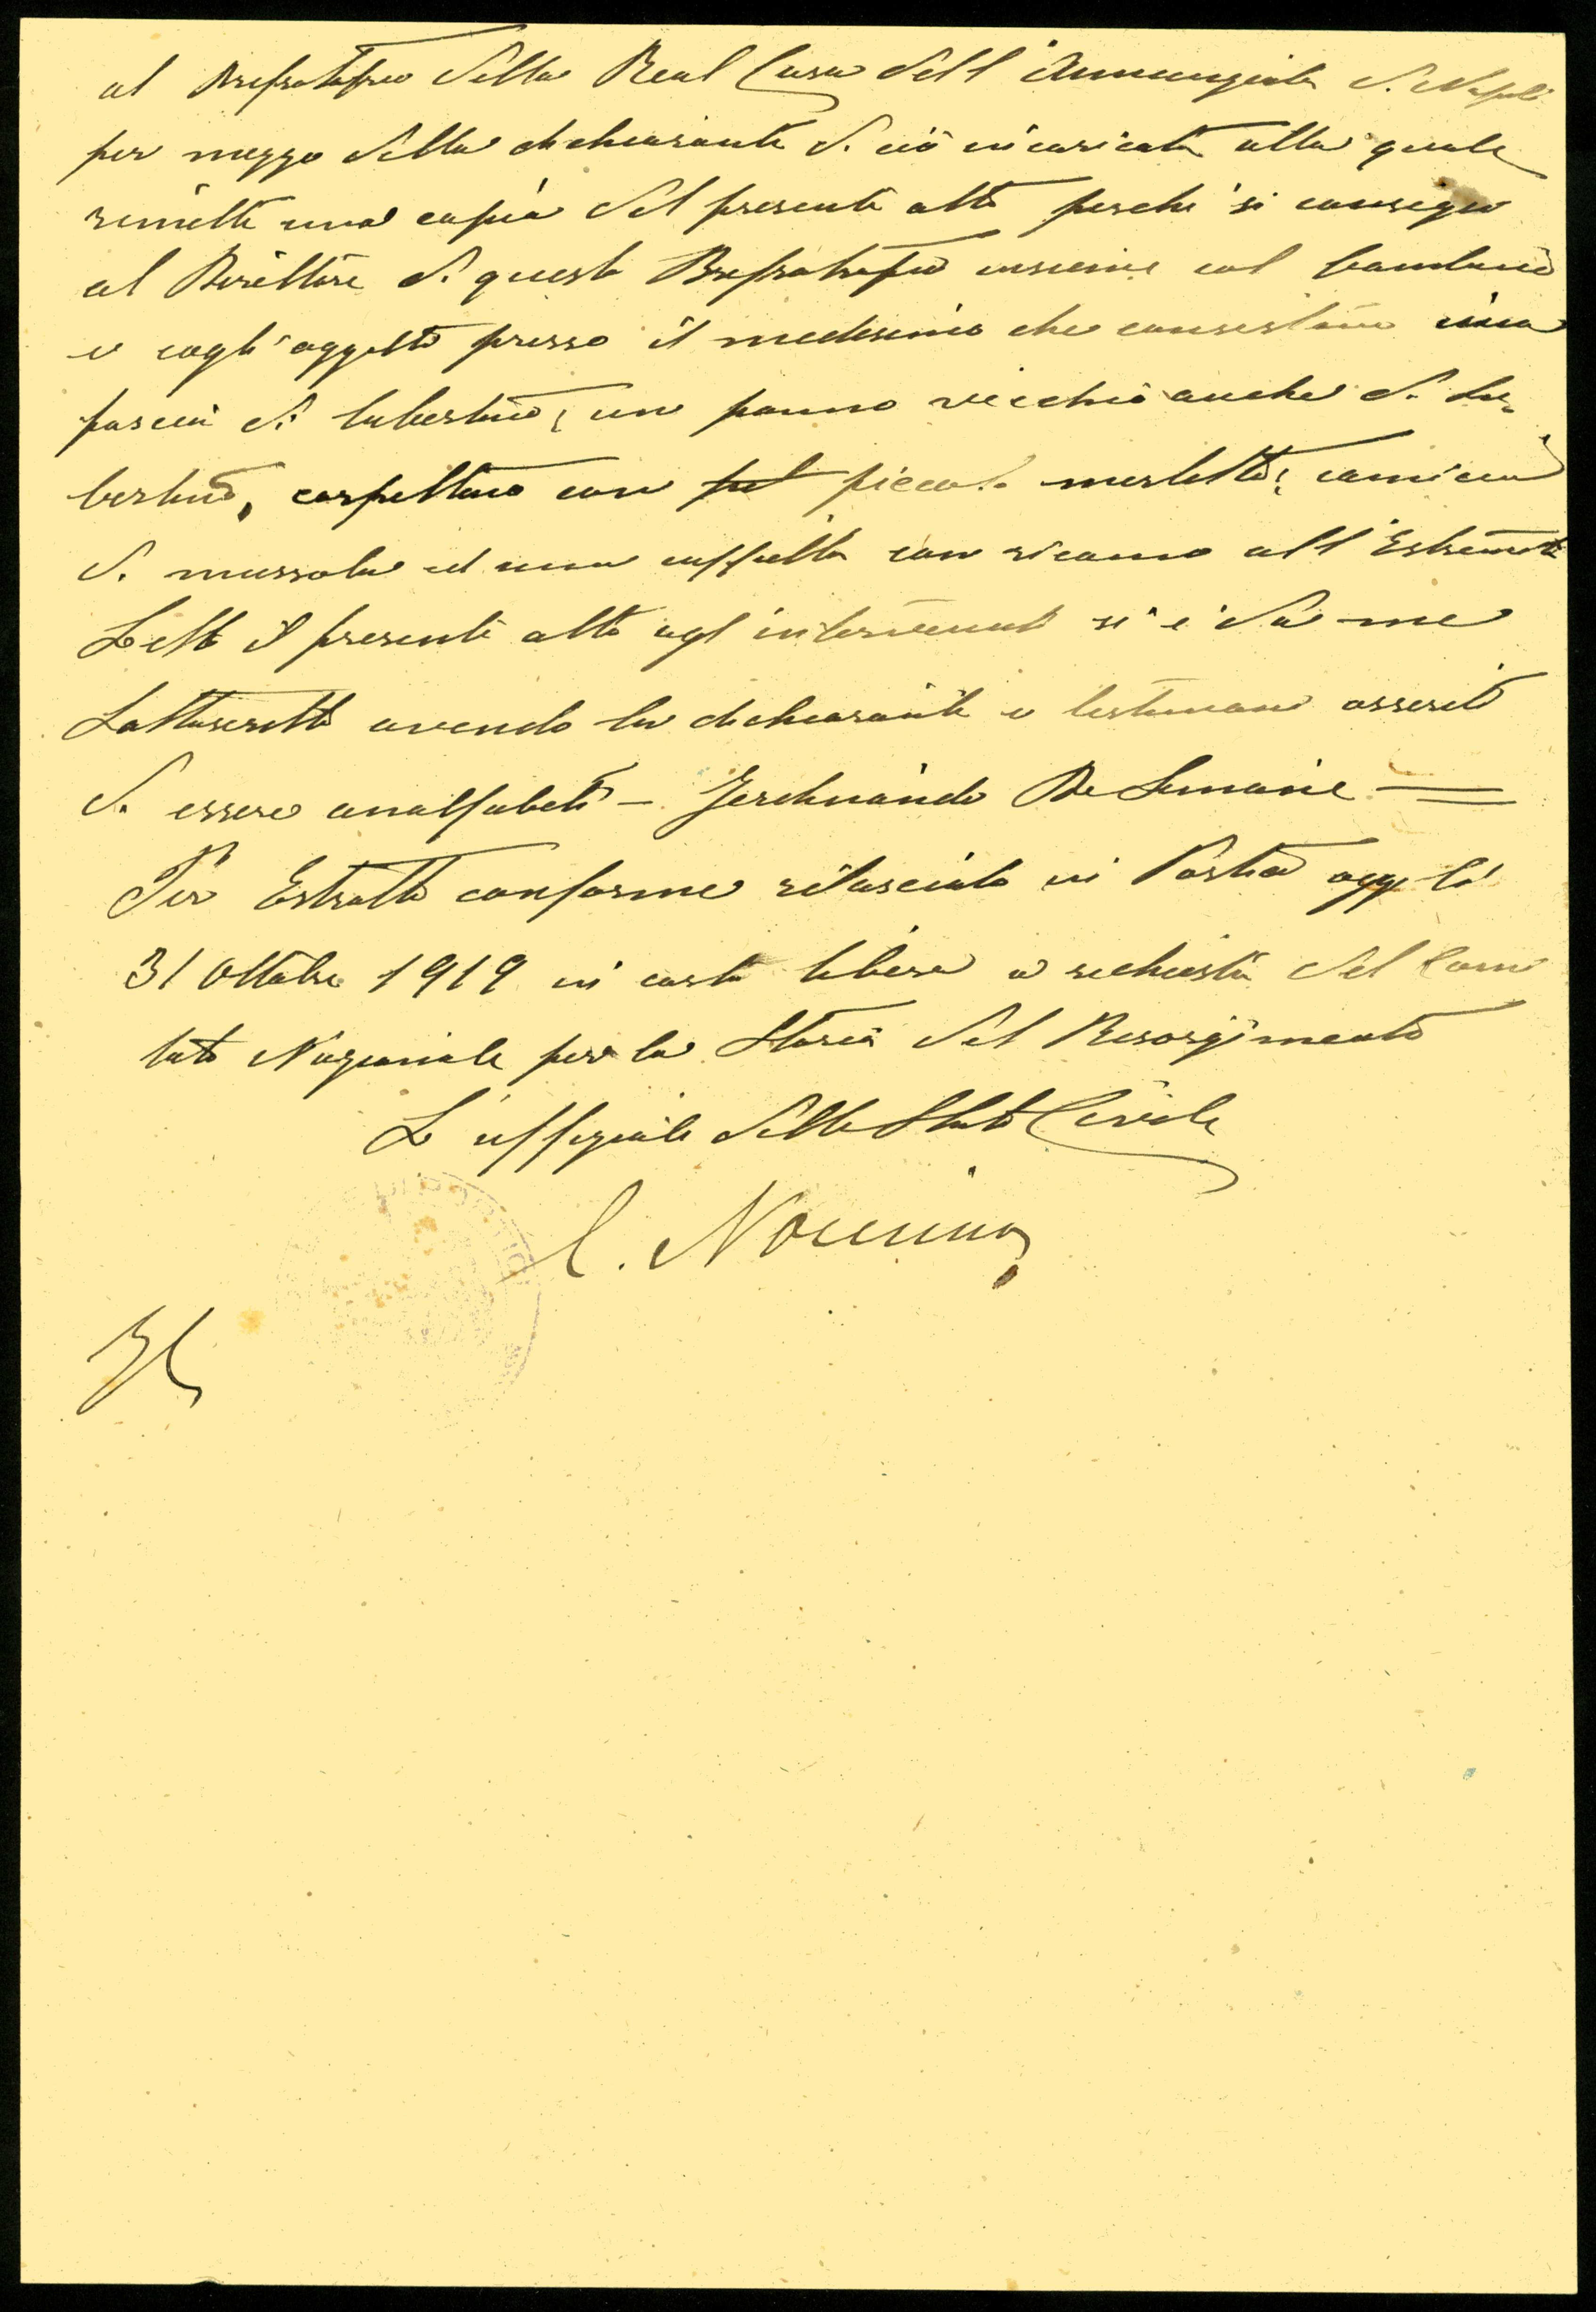 al Brefotrofio della Real Casa dell'Annunziata di Napoli
per mezzo della dichiarante di ciò incaricata alla quale
rimette una copia del presente atto perché si consegni
al Direttore di questo Brefotrofio insieme col bambino
e cogli oggetti presso il medesimo che consistono una
fascia di lubertino, un panno vecchio anche di lu-
bertino, corpettino con piccolo merletto, camicia
di mussola ed una cuffietta con ricamo all'Estremità
Letto il presente atto agl'intervenuti si è da me
sottoscritto avendo la dichiarante e testimoni asserito
di essere analfabeti - Ferdinando De Simone =
Per Estratto conforme rilasciato in Portici oggi lì
31 Ottobre 1919 in carta libera a richiesta del Comi
tato Nazionale per la Storia del Risorgimento
L'uffiziale dello Stato Civile
C. Nocerino